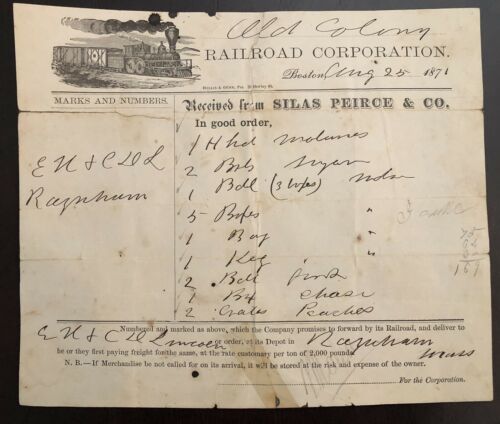 Old Colony
RAILROAD CORPORATION.
Boston, Aug 25 1871
MARKS AND NUMBERS.
Received from SILAS PEIRCE & CO.
In good order,
1 Hhd molasses
2 Bbls Sugar
E H & C D L
1 Bdl (3 boxes) Mdse
Raynham
5 Boxes "
1 Bag "
75
1 Keg "
2 Bbls Pork
161
1 Bx Cheese
2 Crates Peaches
Numbered and marked as above, which the Company promises to forward by its Railroad, and deliver to
E H & C D Lincoln or order, at its Depot in Raynham
be or they first paying freight for the same, at the rate customary per ton of 2,000 pounds. Mass
N. B.—If Merchandise be not called for on its arrival, it will be stored at the risk and expense of the owner.
For the Corporation.